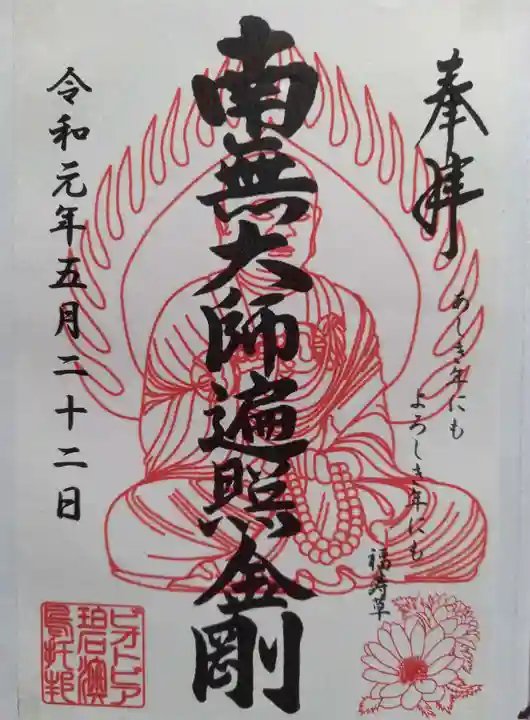 奉拝
あしき年にも
よろしき年にも
福寿草
南無大師遍照金剛
令和元年五月二十二日
ピオトピア
碧演
烏托邦